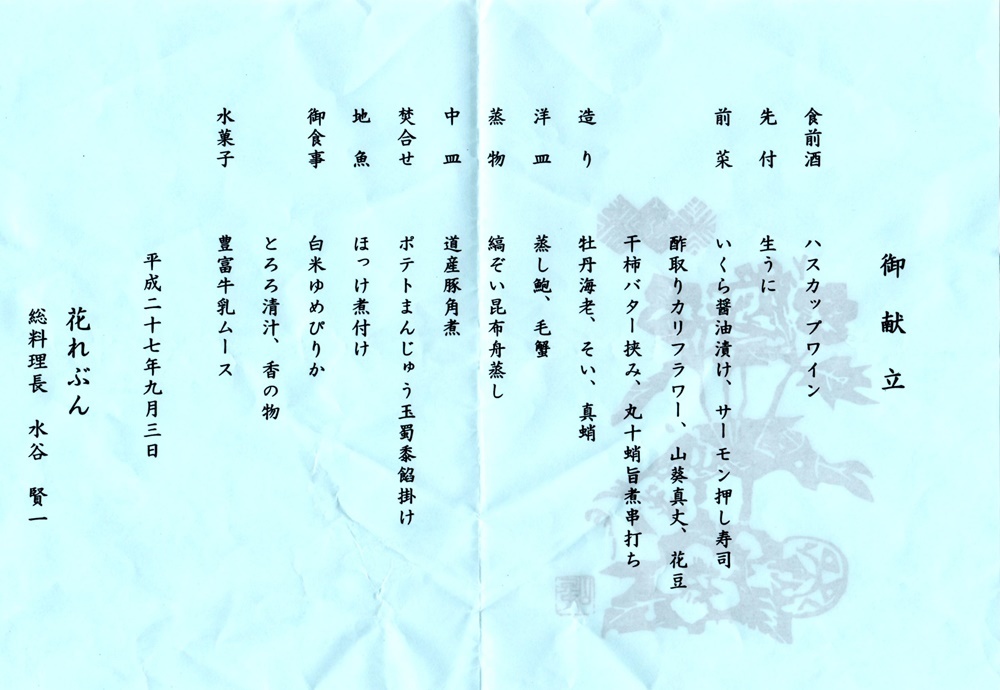 御献立
食前酒 ハスカップワイン
先付 生うに
前菜 いくら醤油漬け、サーモン押し寿司
酢取りカリフラワー、山葵真丈、花豆
干柿バター挟み、丸十蛸旨煮串打ち
造り 牡丹海老、そい、真蛸
洋皿 蒸し鮑、毛蟹
蒸物 縞ぞい昆布舟蒸し
中皿 道産豚角煮
焚合せ ポテトまんじゅう玉蜀黍餡掛け
地魚 ほっけ煮付け
御食事 白米ゆめぴりか
とろろ清汁、香の物
水菓子 豊富牛乳ムース
平成二十七年九月三日
花れぶん
総料理長 水谷 賢一